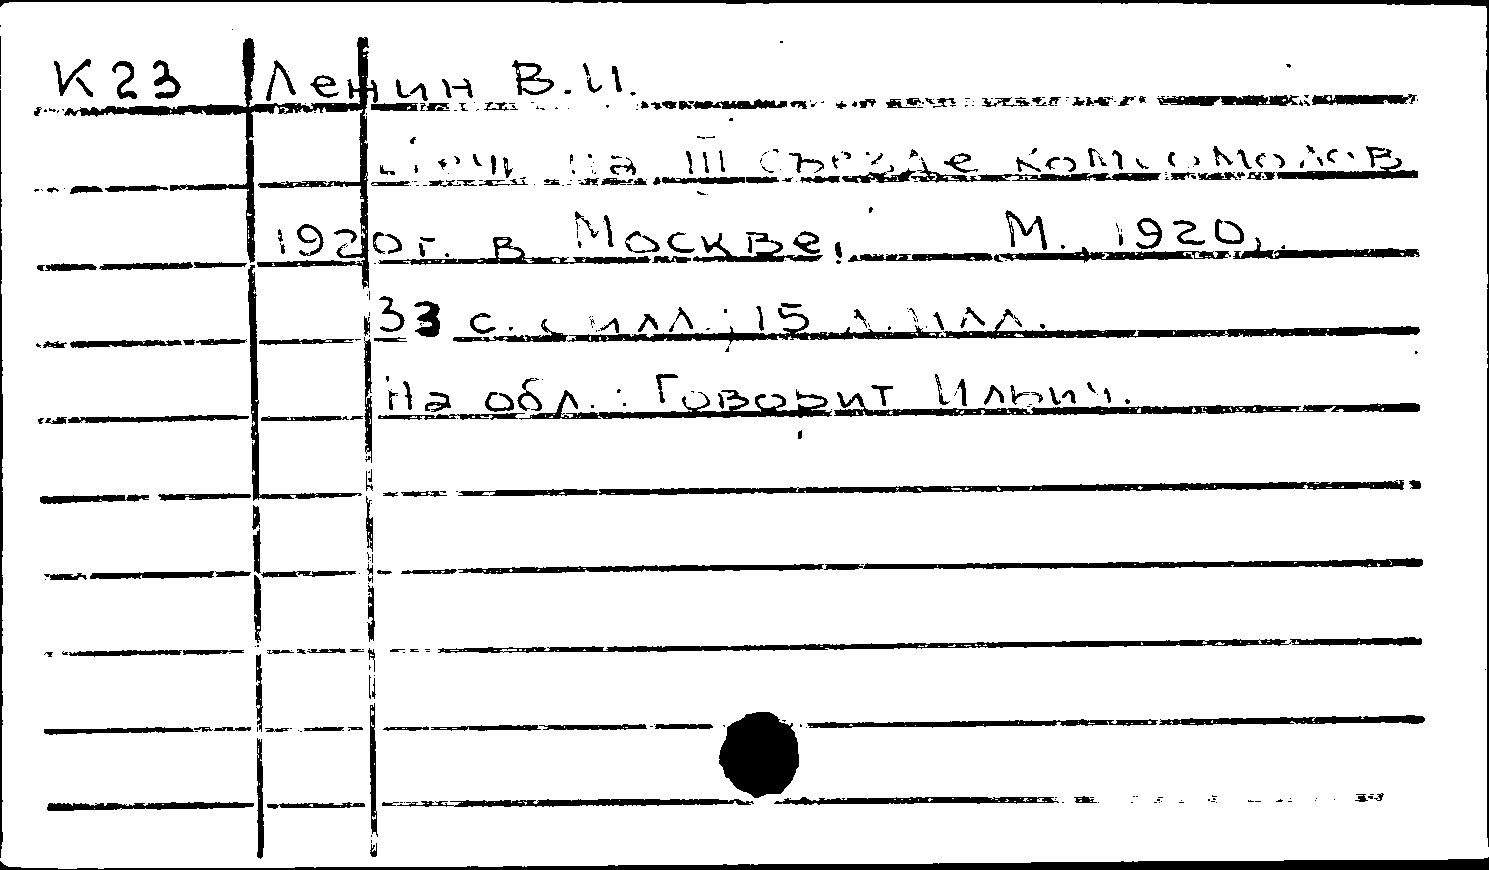 К23 Ленин В.И.
на III съезде комсомолов
1920г. в Москве. М., 1920,.
33 с. с илл.; 15 л. илл.
На обл.: Говорит Ильич.